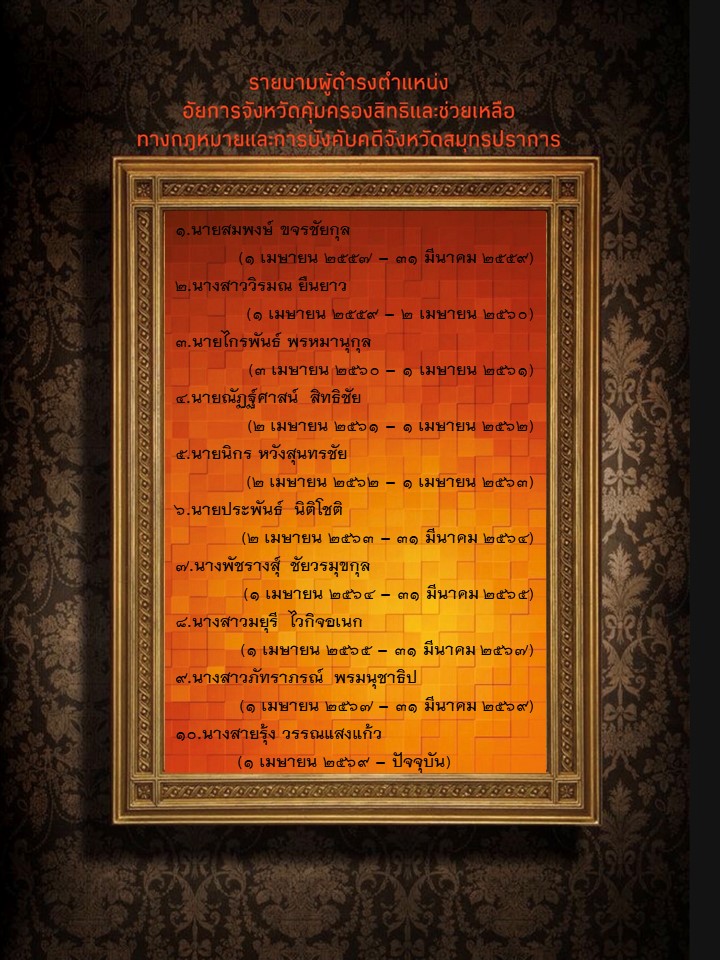 รายนามผู้ดำรงตำแหน่ง
อัยการจังหวัดคุ้มครองสิทธิและช่วยเหลือ
ทางกฎหมายและการบังคับคดีจังหวัดสมุทรปราการ
๑.นายสมพงษ์ ขจรชัยกุล
(๑ เมษายน ๒๕๕๗ – ๓๑ มีนาคม ๒๕๕๙)
๒.นางสาววิรมณ ยืนยาว
(๑ เมษายน ๒๕๕๙ – ๒ เมษายน ๒๕๖๐)
๓.นายไกรพันธ์ พรหมานุกุล
(๓ เมษายน ๒๕๖๐ – ๑ เมษายน ๒๕๖๑)
๔.นายณัฏฐ์ศาสน์ สิทธิชัย
(๒ เมษายน ๒๕๖๑ – ๑ เมษายน ๒๕๖๒)
๕.นายนิกร หวังสุนทรชัย
(๒ เมษายน ๒๕๖๒ – ๑ เมษายน ๒๕๖๓)
๖.นายประพันธ์ นิติโชติ
(๒ เมษายน ๒๕๖๓ – ๓๑ มีนาคม ๒๕๖๔)
๗.นางพัชรางสุ์ ชัยวรมุขกุล
(๑ เมษายน ๒๕๖๔ – ๓๑ มีนาคม ๒๕๖๕)
๘.นางสาวมยุรี ไวกิจอเนก
(๑ เมษายน ๒๕๖๕ – ๓๑ มีนาคม ๒๕๖๗)
๙.นางสาวภัทราภรณ์ พรมนุชาธิป
(๑ เมษายน ๒๕๖๗ – ๓๑ มีนาคม ๒๕๖๙)
๑๐.นางสายรุ้ง วรรณแสงแก้ว
(๑ เมษายน ๒๕๖๙ – ปัจจุบัน)